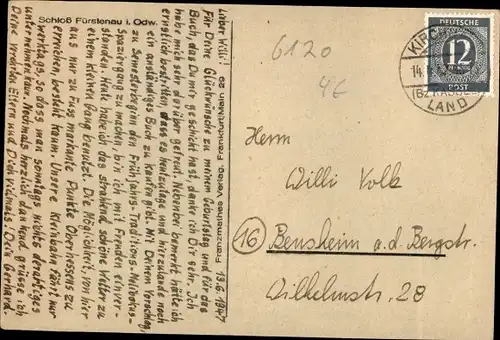 Schloß Fürstenau i. Odw.
Franzmathes Verlag, Frankfurt/Main 29
13.6.1947
Lieber Willi!
Für Deine Glückwünsche zu meinem Geburtstag und für das
Buch, das Du mir geschickt hast, danke ich Dir sehr. Ich
habe mich sehr darüber gefreut. Nebenbei bemerkt hätte ich
ernstlich bestritten, dass es heutzutage und hierzulande noch
ein anständiges Buch zu kaufen gibt. Mit Deinem Vorschlag,
zu Semesterbeginn den Frühjahrs-Traditions-
Spaziergang zu machen, bin ich mit Freuden einver-
standen. Heute habe ich das strahlend schöne Wetter zu
einem kleinen Gang benutzt. Die Möglichkeit, von hier
aus nur zu Fuss markante Punkte Oberhessens zu
erreichen, besteht kaum. Unsere Kreinbahn fährt nur
werktags, so dass man sonntags nichts derartiges
unternehmen kann. Nochmals herzlich dankend grüsse ich
Deine werten Eltern und Dich vielmals! Dein Gerhard.
6120
4€
DEUTSCHE
12
POST
KIRCH
14.
(BZ. KASSEL)
LAND
Herrn
Willi Volk
16
Bensheim a.d. Bergstr.
Wilhelmstr. 28